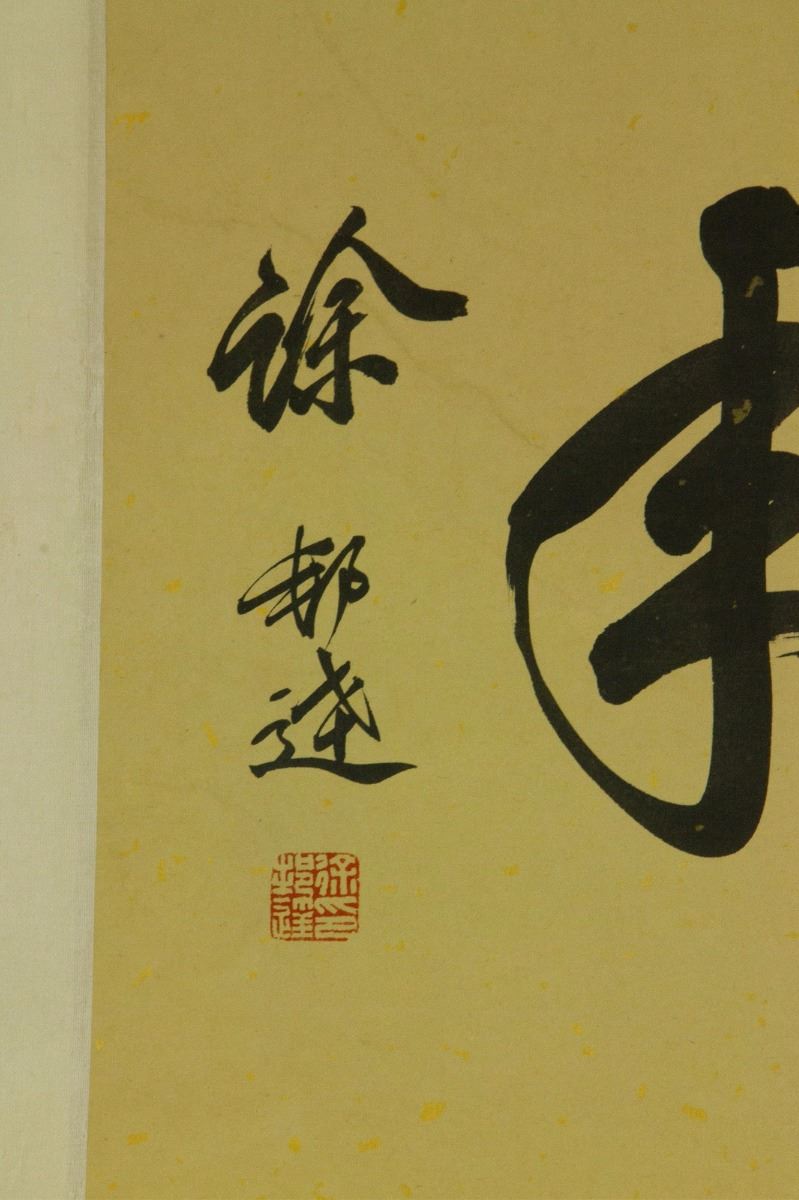 徐邦達
徐邦達印